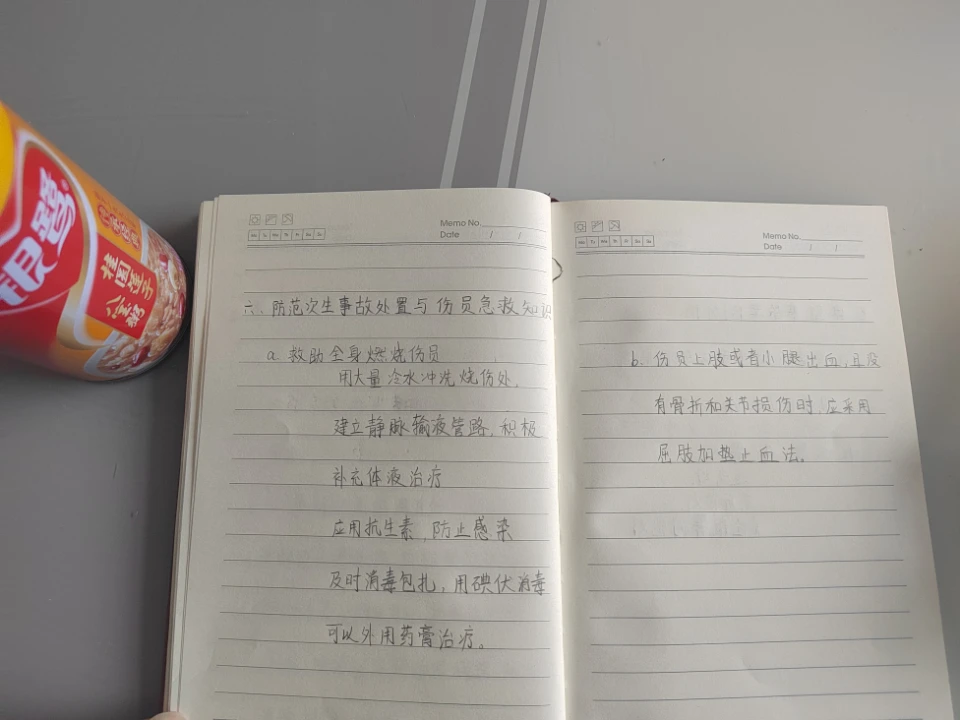 银鹭
桂圆莲子
八宝粥
Memo No.
Mo Tu We Th Fr Sa Su
Date / /
六、防范次生事故处置与伤员急救知识
a 救助全身燃烧伤员
用大量冷水冲洗烧伤处.
建立静脉输液管路,积极
补充体液治疗
应用抗生素,防止感染
及时消毒包扎,用碘伏消毒
可以外用药膏治疗。
Memo No.
Mo Tu We Th Fr Sa Su
Date / /
b. 伤员上肢或者小腿出血,且没
有骨折和关节损伤时,应采用
屈肢加热止血法.